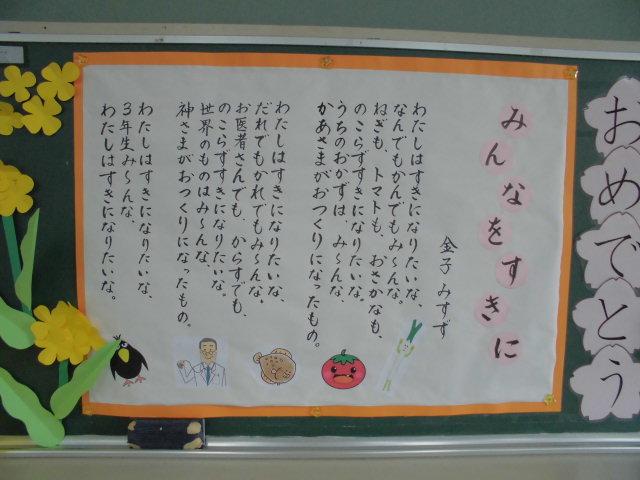 みんなをすきに
金子 みすず
わたしはすきになりたいな、
なんでもかんでもみ〜んな。
ねぎも、トマトも、おさかなも、
のこらずすきになりたいな。
うちのおかずは、み〜んな、
かあさまがおつくりになったもの。
わたしはすきになりたいな、
だれでもかれでもみ〜んな。
お医者さんでも、からすでも、
のこらずすきになりたいな。
世界のものはみ〜んな、
神さまがおつくりになったもの。
わたしはすきになりたいな、
3年生み〜んな、
わたしはすきになりたいな。
おめでとう